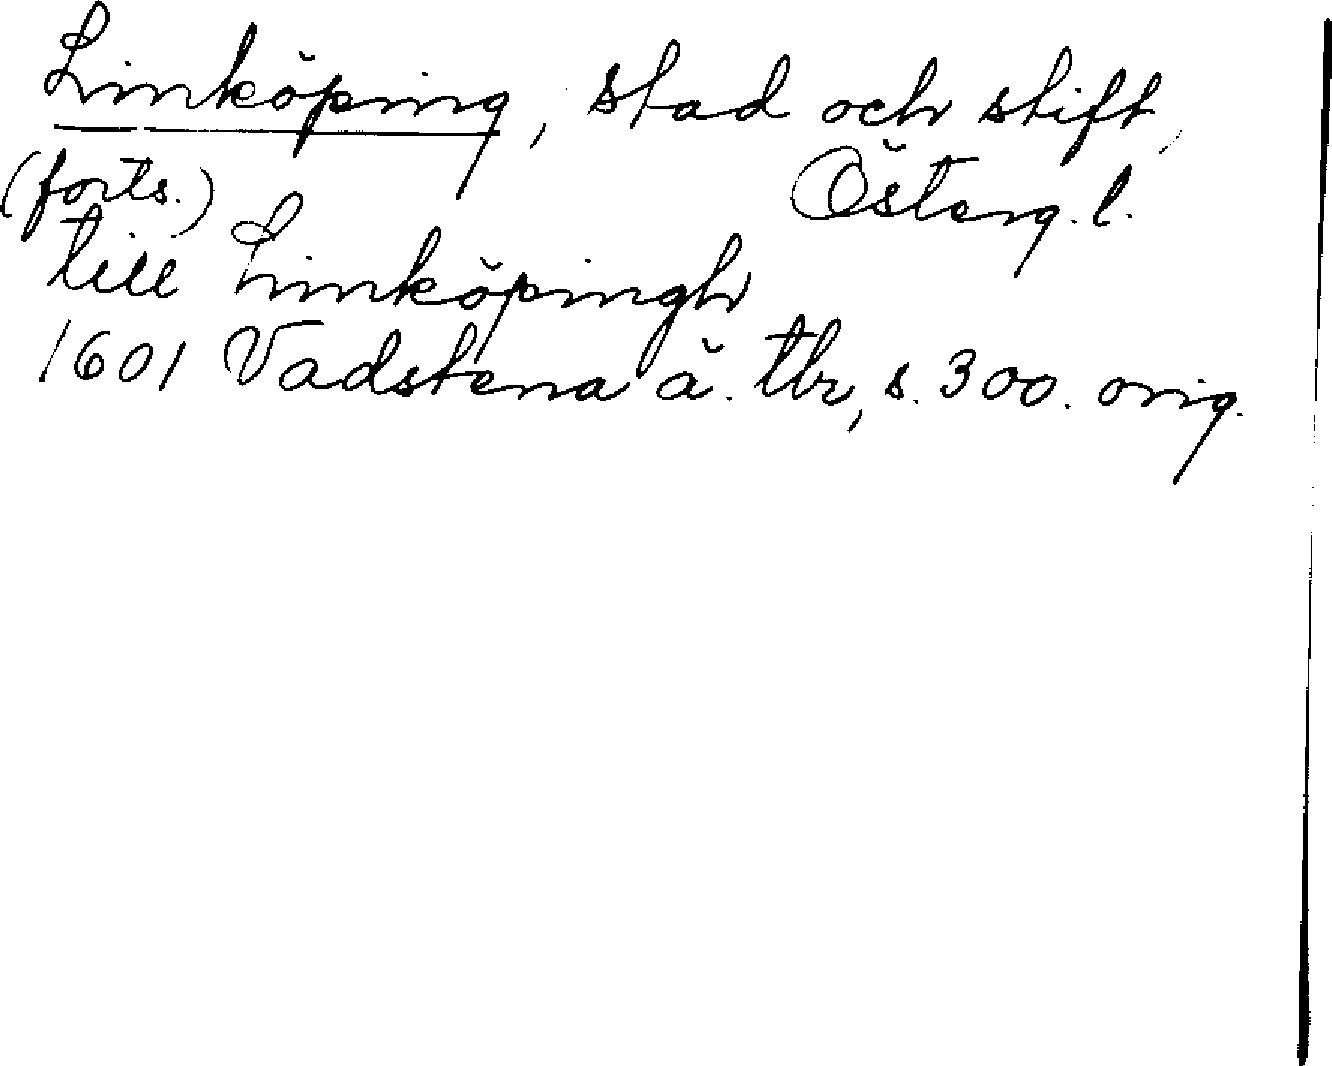 Linköping, stad och stift,
(forts.) Österg. l.
till Linköpingh
1601 Vadstena ä. tbr, s. 300. orig.